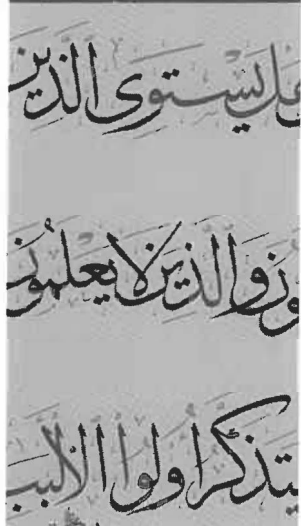 هل يستوى الذين
ون والذين لا يعلمون
يتذكر اولوا الالبب